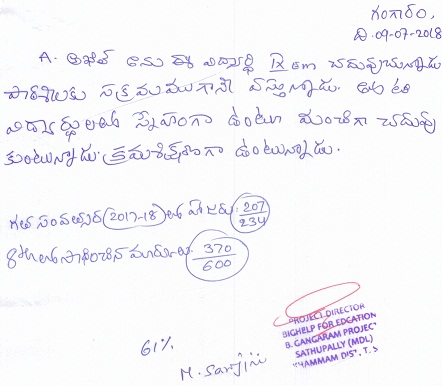 గంగారం,
ది. 09-07-2018
A. అఖిల్ అను ఈ విద్యార్థి IX em చదువుచున్నాడు
పాఠశాలకు సక్రమముగానే వస్తున్నాడు.
విద్యార్థులతో స్నేహంగా ఉంటూ మంచిగా చదువు
కుంటున్నాడు. క్రమశిక్షణగా ఉంటున్నాడు.
గత సంవత్సర (2017-18) లో హాజరు: 207/234
లో సాధించిన మార్కులు: 370/600
61%
PROJECT DIRECTOR
BIGHELP FOR EDCATION
B. GANGARAM PROJEC
SATHUPALLY (MDL)
KHAMMAM DIST, T.S